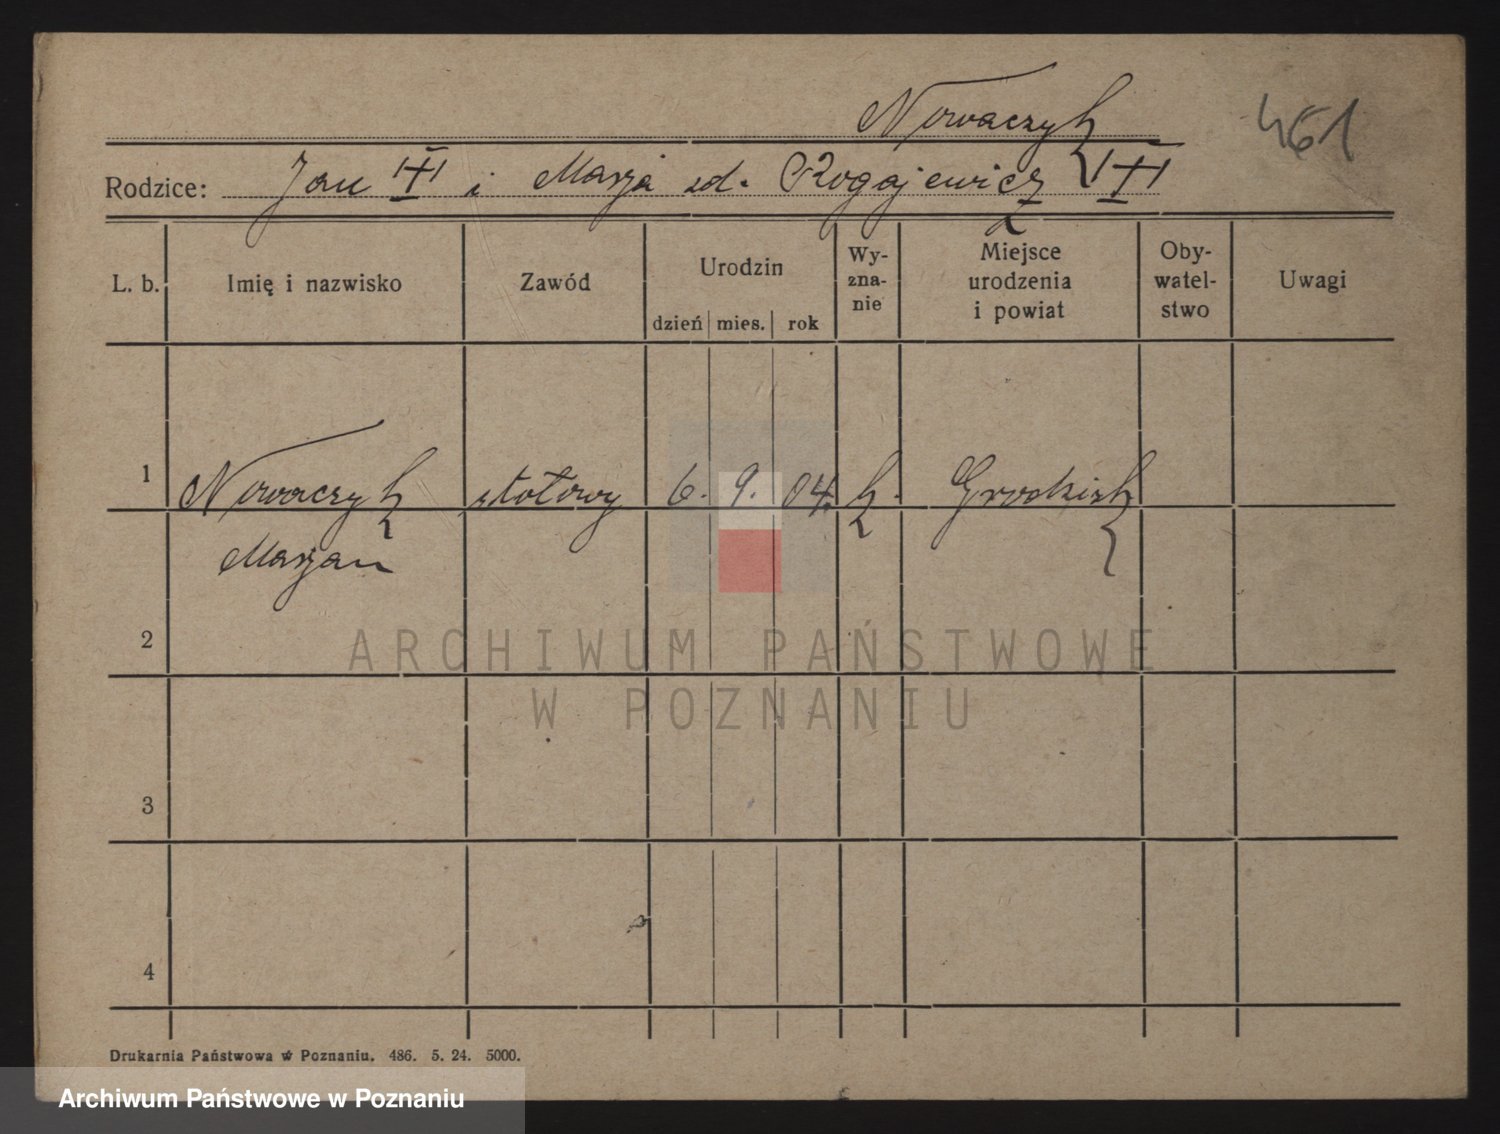 Nowaczyk 461
Rodzice: Jan i Marja zd. Rogajewicz
L. b. Imię i nazwisko Zawód Urodzin dzień mies. rok Wy-zna-nie Miejsce urodzenia i powiat Oby-watel-stwo Uwagi
1 Nowaczyk stołowy 6. 9. 04. k. Grodzisk
Marjan
2
ARCHIWUM PAŃSTWOWE
W POZNANIU
3
4
Drukarnia Państwowa w Poznaniu. 486. 5. 24. 5000.
Archiwum Państwowe w Poznaniu